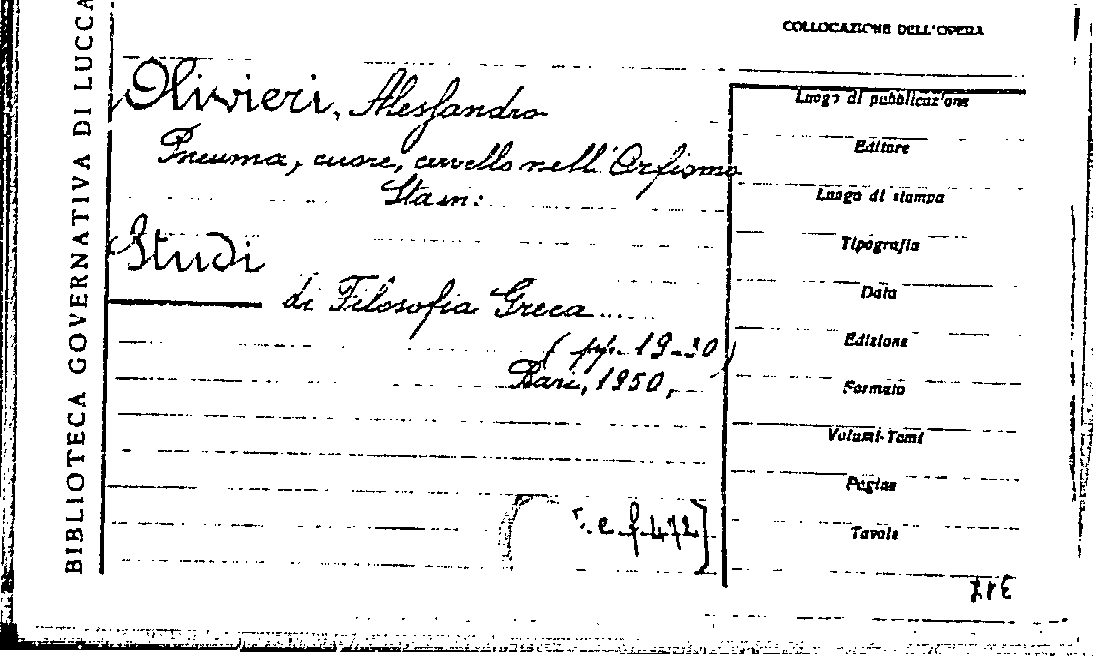 BIBLIOTECA GOVERNATIVA DI LUCCA
COLLOCAZIONE DELL'OPERA
Olivieri, Alessandro
Pneuma, cuore, cervello nell'Orfismo
Stam:
Studi
di Filosofia Greca....
(pp. 19-30)
Bari, 1950,
e f. 472]
Luogo di pubblicazione
Editore
Luogo di stampa
Tipografia
Data
Edizione
Formato
Volumi-Tomi
Pagine
Tavole